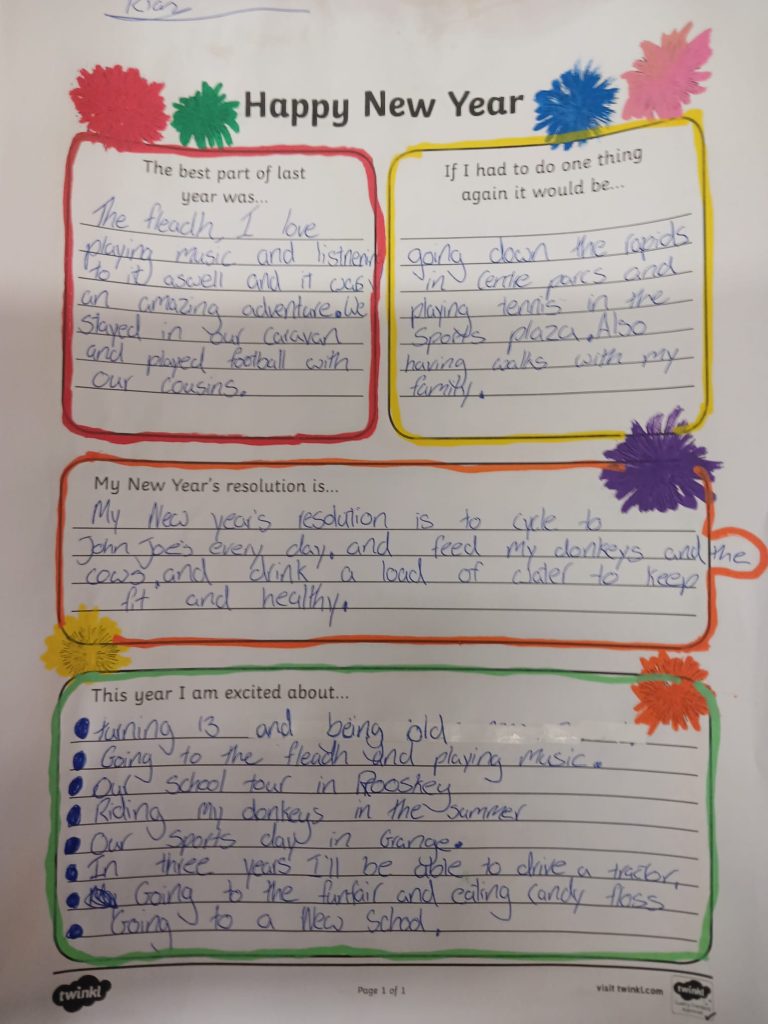 Happy New Year
The best part of last
year was...
The fleadh, I love
playing music and listnening
to it aswell and it was
an amazing adventure. We
stayed in our caravan
and played football with
our cousins.
If I had to do one thing
again it would be...
going down the rapids
in Centre parcs and
playing tennis in the
Sports plaza. Also
having walks with my
family.
My New Year's resolution is...
My New year's resolution is to cycle to
John Joe's every day. and feed my donkeys and the
cows. and drink a load of water to keep
fit and healthy.
This year I am excited about...
turning 13 and being old
Going to the fleadh and playing music.
Our school tour in Rooskey
Riding my donkeys in the summer
Our Sports day in Grange.
In three years I'll be able to drive a tractor.
Going to the funfair and eating Candy floss
Going to a New School.
twinkl
Page 1 of 1
visit twinkl.com
twinkl